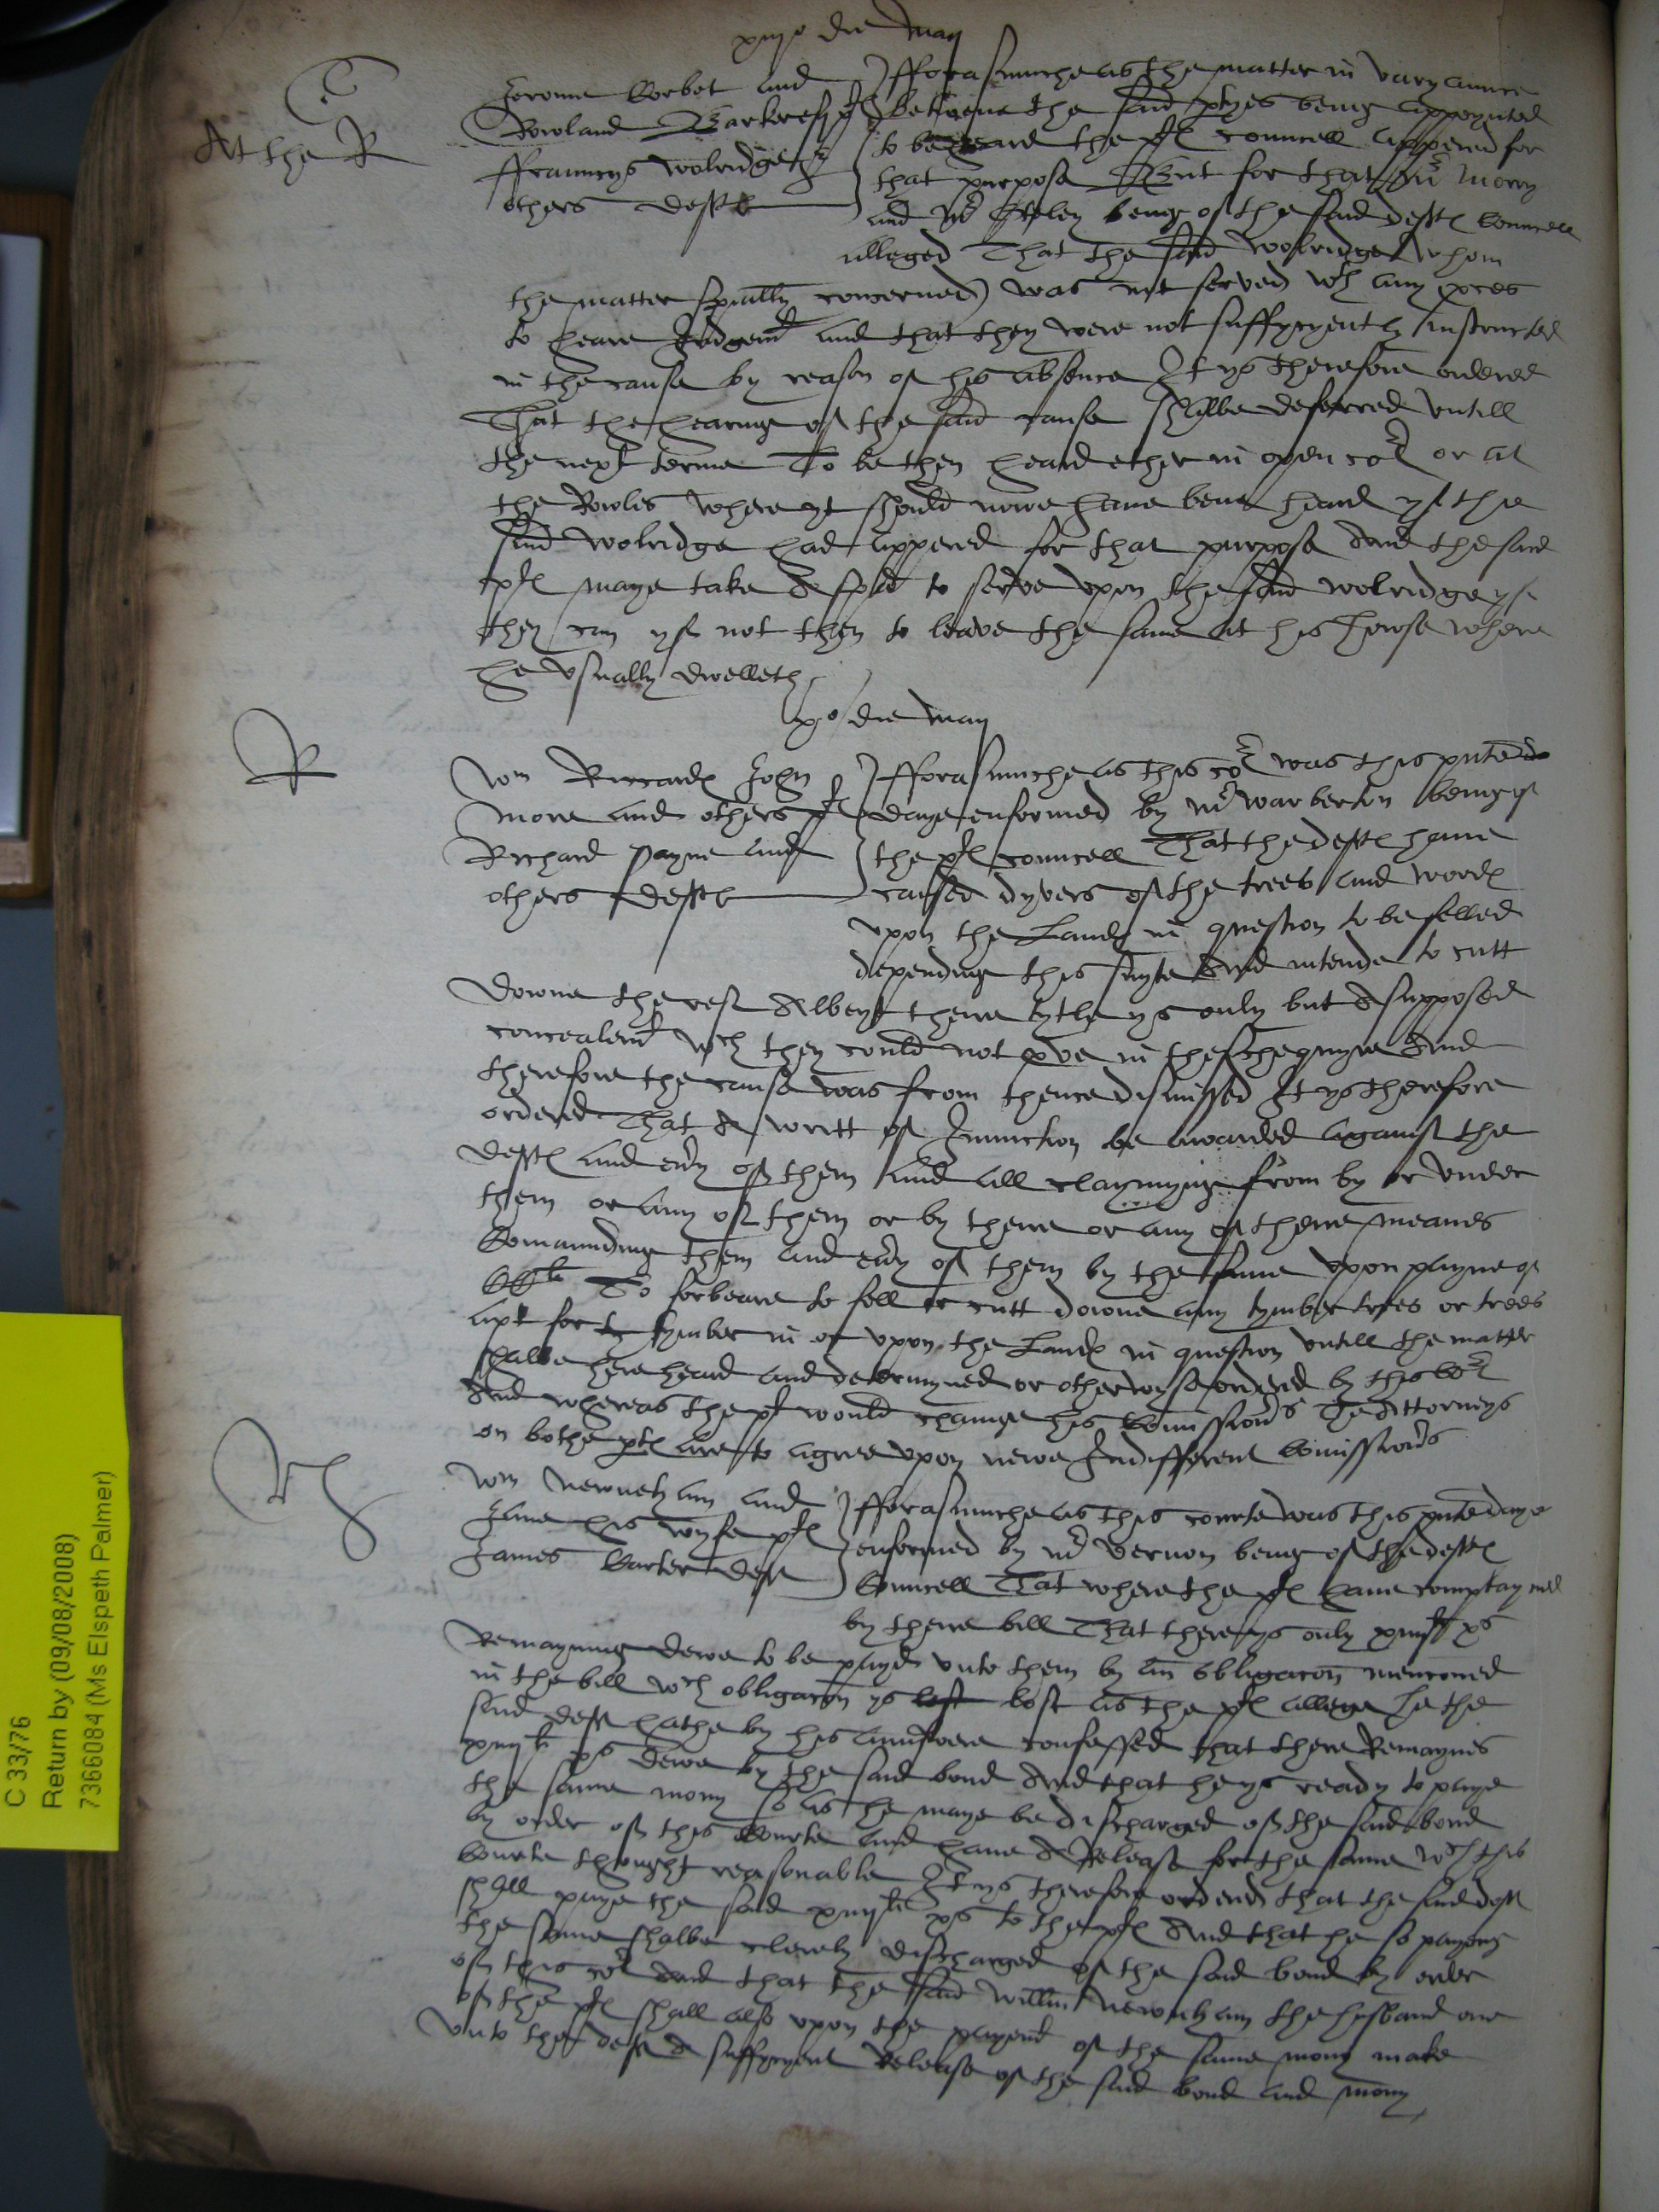 die Maij
C
At the R
Jerome Corbet and
Rowland Barker plᵗ
ffrauncys Wolridge &
others defᵗᵉ
fforasmuche as the matter in varyaunce
betwene the said ptyes being appoynted
to be heard the plᵗ councell appered for
that purpose But for that Mr Morry
and Mr being of the said defᵗᵉ Councell
alleged That the said Wolridge whom
the matter spiallie concerned was not served wth any pces
to heare Judgemᵗ and that they were not suffycyently instructed
in the cause by reason of his absence It ys therefore ordered
That the hearing of the said cause shalbe deferred vntill
the next terme To be then heard ether in open coᵗ or at
the Rowles where yt should nowe have bene heard yf the
said Wolridge had appered for that purpose And the said
plᵗ maye take A spa to serve vpon the said Wolridge yf
they can yf not then to leave the same at his howse where
he vsually dwelleth
xº die Maij
R
Wm Riccardᵉ John
More and others plᵗ
Richard Payne and
others defᵗᵉ
fforasmuche as this coᵗ was this pnte
daye enformed by Mr Warberton being of
the plᵗ councell That the defᵗᵉ have
caused dyvers of the trees and woodᵉ
vpon the Landᵉ in question to be felled
depending this suyte And intende to cutt
downe the rest Albeyt there tytle ys only but A supposed
concealemᵗ wch they could not pve in theschequyre And
therefore the cause was from thence dismissed It ys therefore
ordered That A writt of Iniunction be awarded against the
defᵗᵉ and evy of them and all clayming from by or vnder
them or any of them or by there or any of there meanes
Comaunding them and evy of them by the same vpon payne of
CCˡⁱ To forbeare to fell or cutt downe any tymber trees or trees
apt for ty tymber in or vpon the Landᵉ in question vntill the matter
shalbe here heard and determyned or otherwyse ordered by this Coᵗ
And whereas the plᵗ would chainge his Comissionʳs The Attorneys
on bothe ptᵉ are to agree vpon newe Indifferent Comissionʳs
R
Wm Newneham and
Jane his wyfe plᵗ
James Carter defᵗ
fforasmuche as this courte was this pnte daye
enformed by Mr Vernon being of the defᵗᵉ
Councell That where the plᵗ have complayned
by there bill That there ys only xviijˡⁱ xˢ
Remayning dewe to be payd vnto them by an obligacon mencioned
in the bill wch obligacon ys lost lost as the plᵗ allege he the
said defᵗ hathe by his aunswere confessed that there Remaynes
xviijˡⁱ xˢ dewe by the said bond And that he ys ready to paye
the same mony so as he maye be discharged of the said bond
by order of this Courte and have A Release for the same wch this
Courte thought reasonable It ys therefore ordered that the said defᵗ
shall paye the said xviijˡⁱ xˢ to the plᵗ And that he so paying
the same shalbe clerely discharged of the said bond by order
of this coᵗ And that the said Willm Newneham the husband one
of the plᵗ shall also vpon the paymᵗ of the same mony make
vnto the defᵗ A suffycyent Release of the said bond and mony
C 33/76
Return by (09/08/2008)
7366084 (Ms Elspeth Palmer)